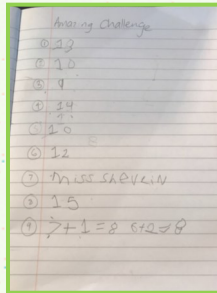 Amazing Challenge
① 13
② 10
③ 9
④ 14
⑤ 10
⑥ 12
⑦ Miss Shevein
⑧ 15
⑨ 7+1=8 6+2=8